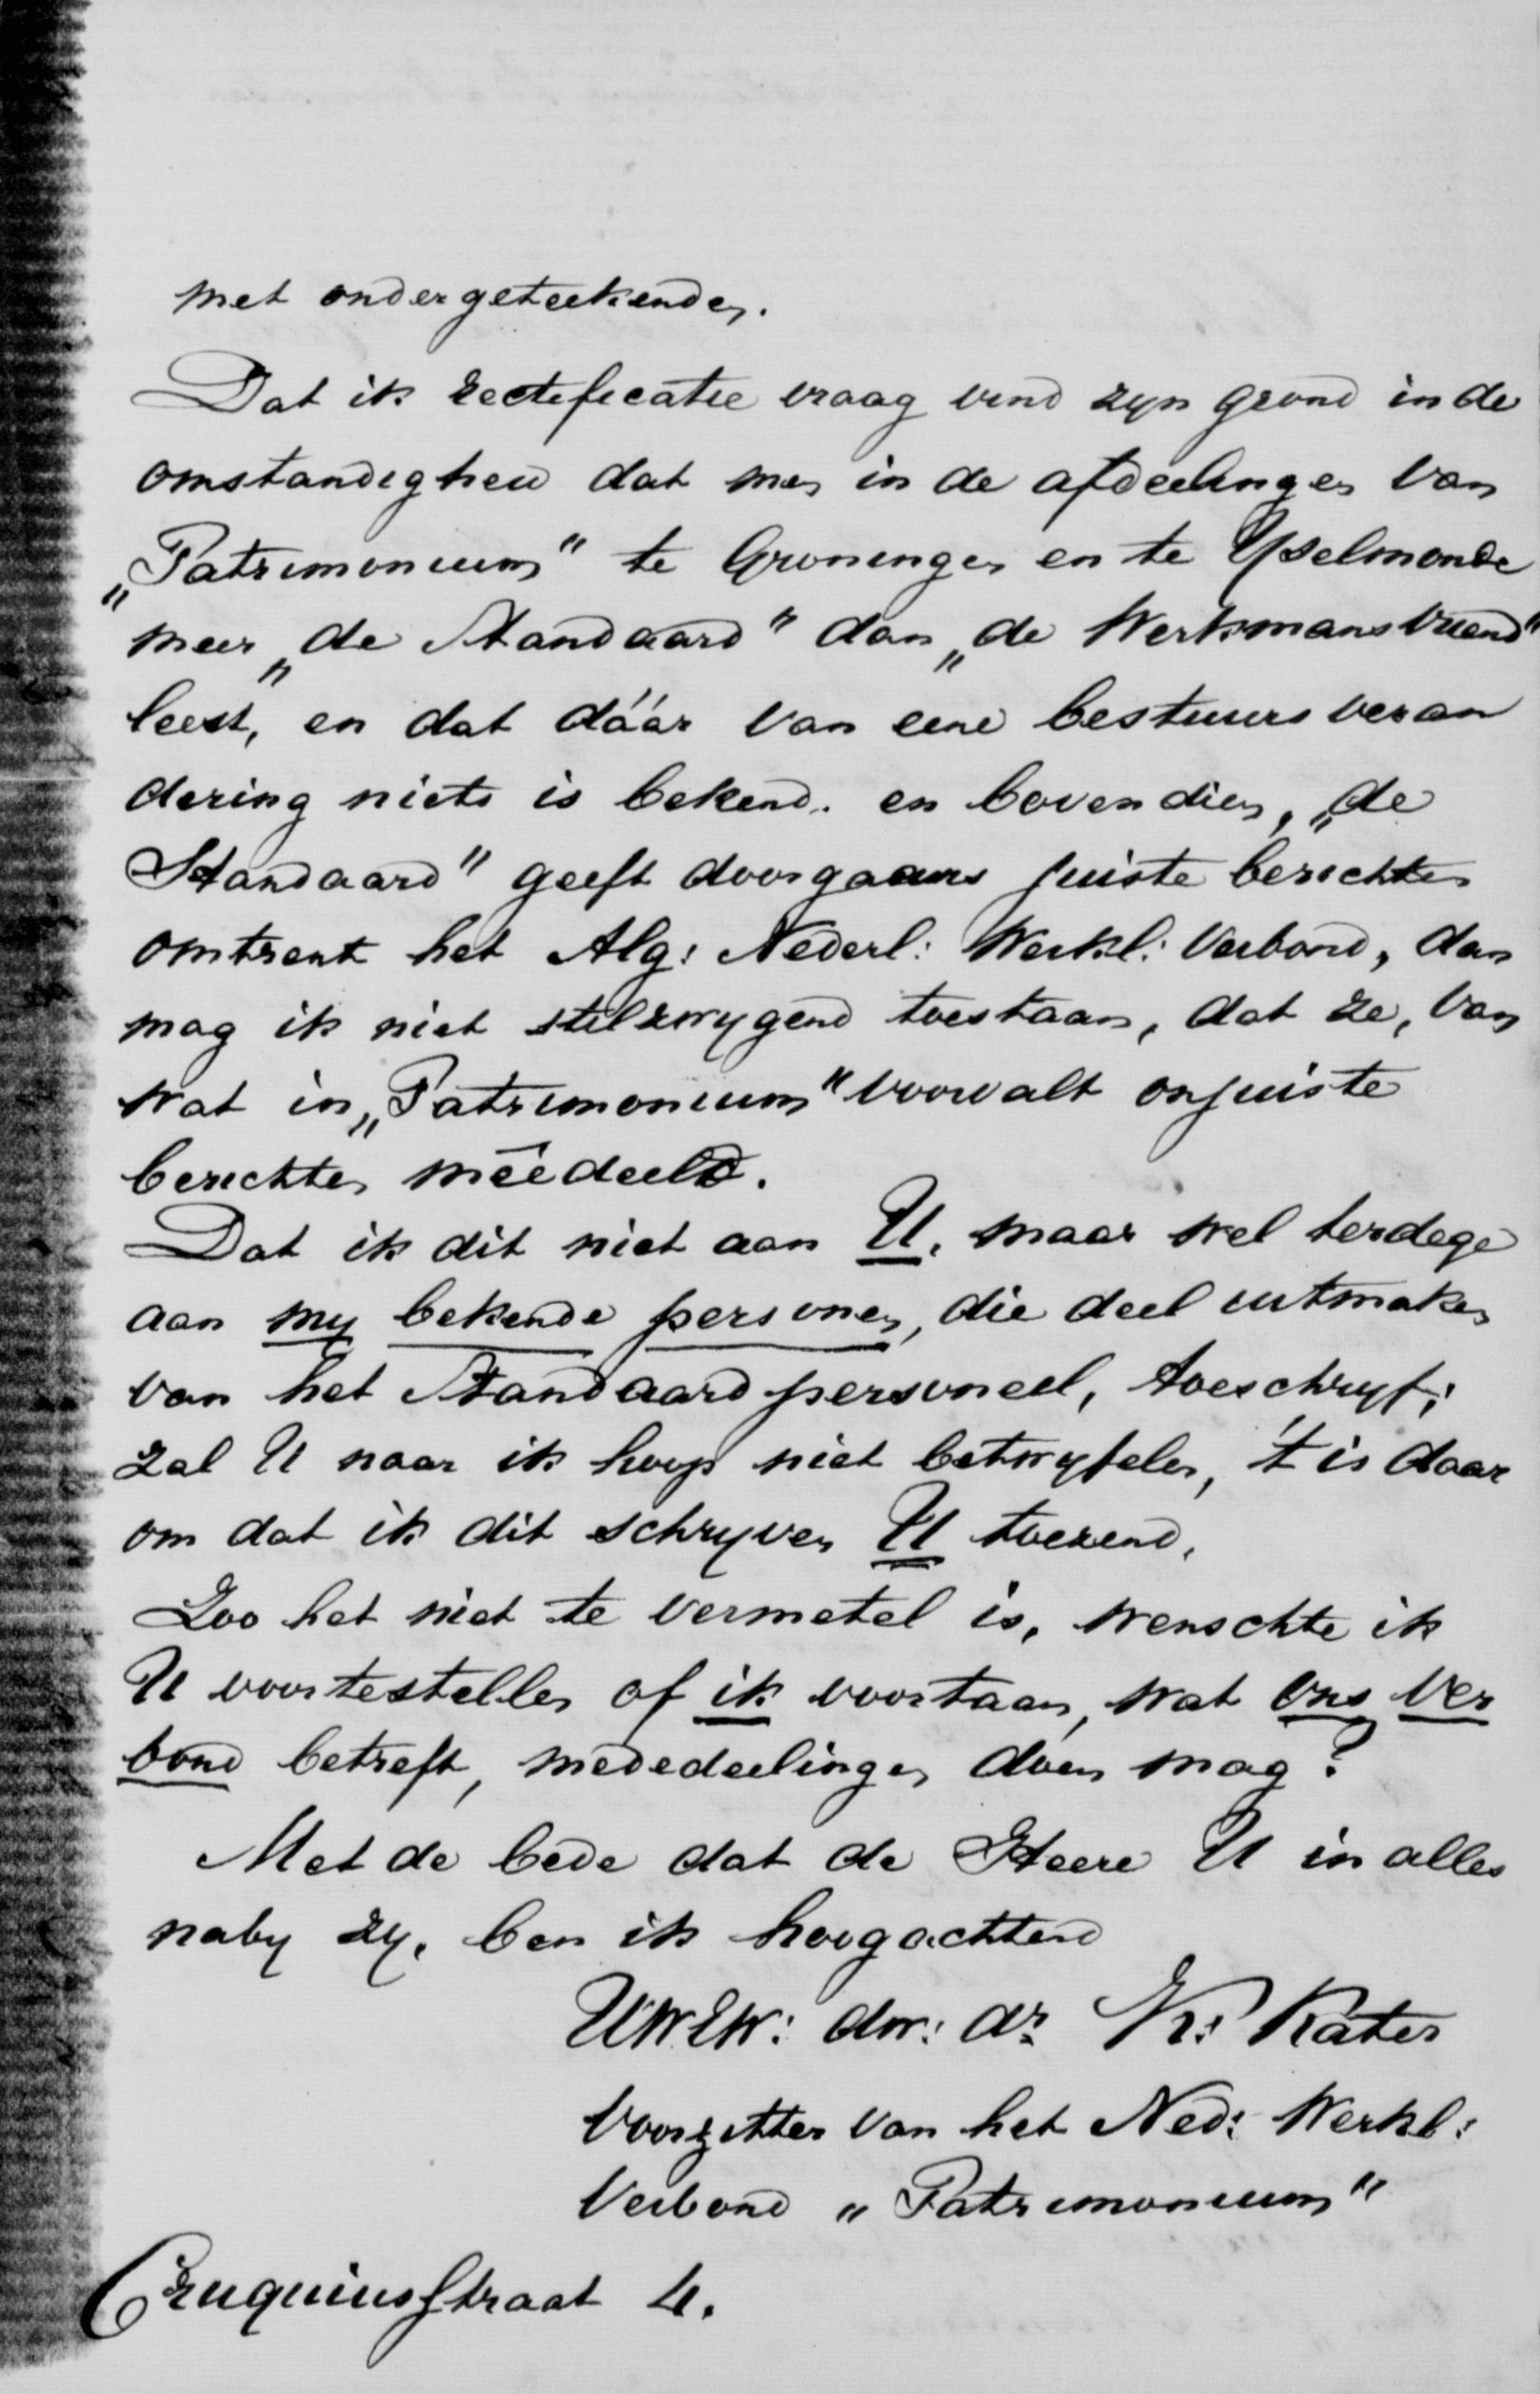 met ondergeteekenden.
Dat ik rectificatie vraag vind zyn grond in de
omstandigheid dat men in de afdeelingen van
„Patrimonium" te Groningen en te Yselmonde
meer „de Standaard" dan „de Werkmansvriend"
leest, en dat dáár van eene bestuurs veran
dering niets is bekend. en bovendien, „de
Standaard" geeft doorgaans juiste berichten
omtrent het Alg: Nederl: Werkl: Verbond, dan
mag ik niet stilzwygend toestaan, dat ze, van
wat in „Patrimonium" voorvalt onjuiste
berichten mêedeeld.
Dat ik dit niet aan U, maar wel terdege
aan my bekende personen, die deel uitmaken
van het Standaard personeel, toeschryf;
zal U naar ik hoop niet betwyfelen, 't is daar
om dat ik dit schryven U toezend,
Zoo het niet te vermetel is, wenschte ik
U voortestellen of ik voortaan, wat ons ver
bond betreft, mededeelingen doen mag?
Met de bede dat de Heere U in alles
naby zy, ben ik hoogachtend
UWEW: dw: dr Kr: Kater
Voorzitter van het Ned: Werkl:
Verbond „Patrimonium"
Cruquiusstraat 4.